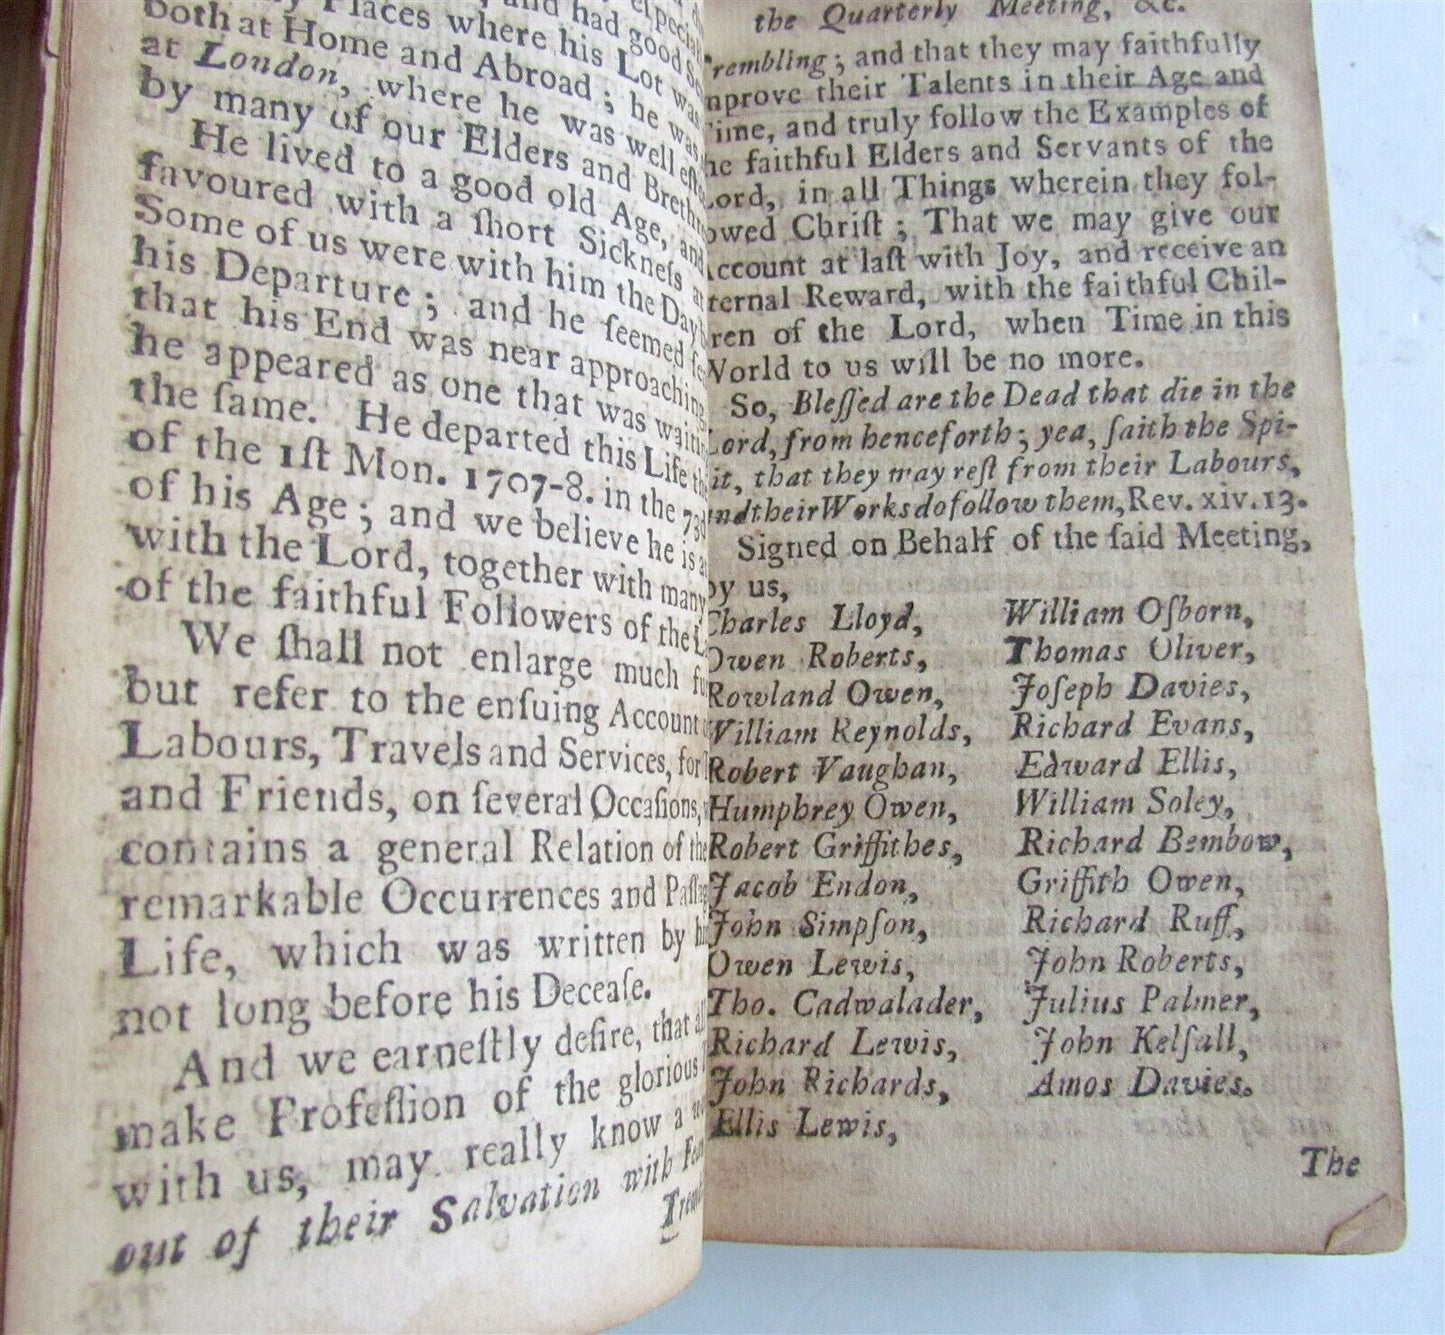 and had good
Places where his Lot was
both at Home and Abroad; he was
at London, where he was well
by many of our Elders and
He lived to a good old Age, and
favoured with a ſhort Sickneſs at
Some of us were with him the Day
his Departure; and he ſeemed
that his End was near approaching
he appeared as one that was
the ſame. He departed this Life
of the 1ſt Mon. 1707-8. in the 73d
of his Age; and we believe he is
with the Lord, together with many
of the faithful Followers of the
We ſhall not enlarge much
but refer to the enſuing Account
Labours, Travels and Services, for
and Friends, on ſeveral Occaſions,
contains a general Relation of the
remarkable Occurrences and
Life, which was written by
not long before his Deceaſe.
And we earneſtly deſire, that
make Profeſſion of the glorious
with us, may really know a
out of their Salvation with
the Quarterly Meeting, &c.
rembling; and that they may faithfully
mprove their Talents in their Age and
ime, and truly follow the Examples of
he faithful Elders and Servants of the
Lord, in all Things wherein they fol-
owed Chriſt; That we may give our
Account at laſt with Joy, and receive an
ternal Reward, with the faithful Chil-
ren of the Lord, when Time in this
World to us will be no more.
So, Bleſſed are the Dead that die in the
Lord, from henceforth; yea, ſaith the Spi-
it, that they may reſt from their Labours,
and their Works do follow them, Rev. xiv. 13.
Signed on Behalf of the ſaid Meeting,
by us,
Charles Lloyd,
Owen Roberts,
Rowland Owen,
William Reynolds,
Robert Vaughan,
Humphrey Owen,
Robert Griffithes,
Jacob Endon,
John Simpſon,
Owen Lewis,
Tho. Cadwalader,
Richard Lewis,
John Richards,
Ellis Lewis,
William Oſborn,
Thomas Oliver,
Joſeph Davies,
Richard Evans,
Edward Ellis,
William Soley,
Richard Bembow,
Griffith Owen,
Richard Ruff,
John Roberts,
Julius Palmer,
John Kelſall,
Amos Davies.
The